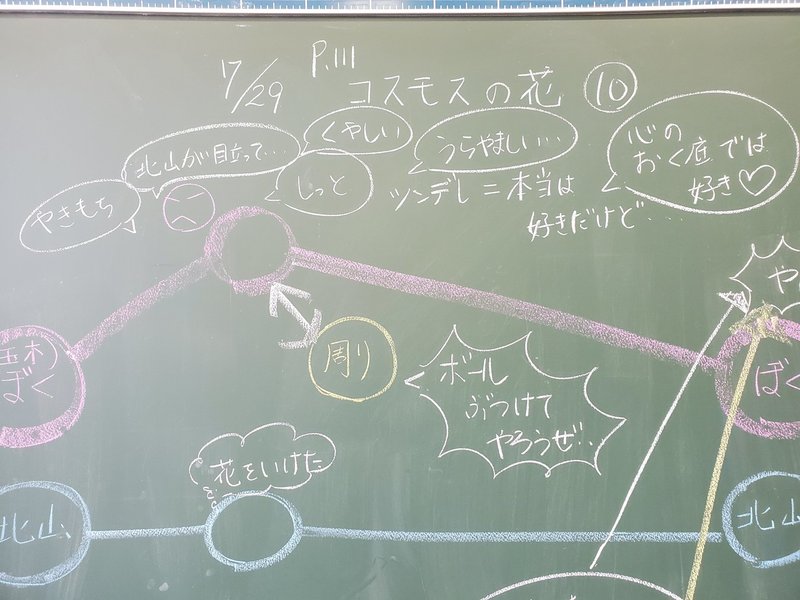 7/29
P.111
コスモスの花 ⑩
やきもち
北山が目立って…
くやしい
じっと
うらやましい…
心の
おく底では
好き♡
ツンデレ=本当は
好きだけど…
ぼく
周り
ボール
ぶつけて
やろうぜ!!
や
ぼく
北山
花をいけた
北山